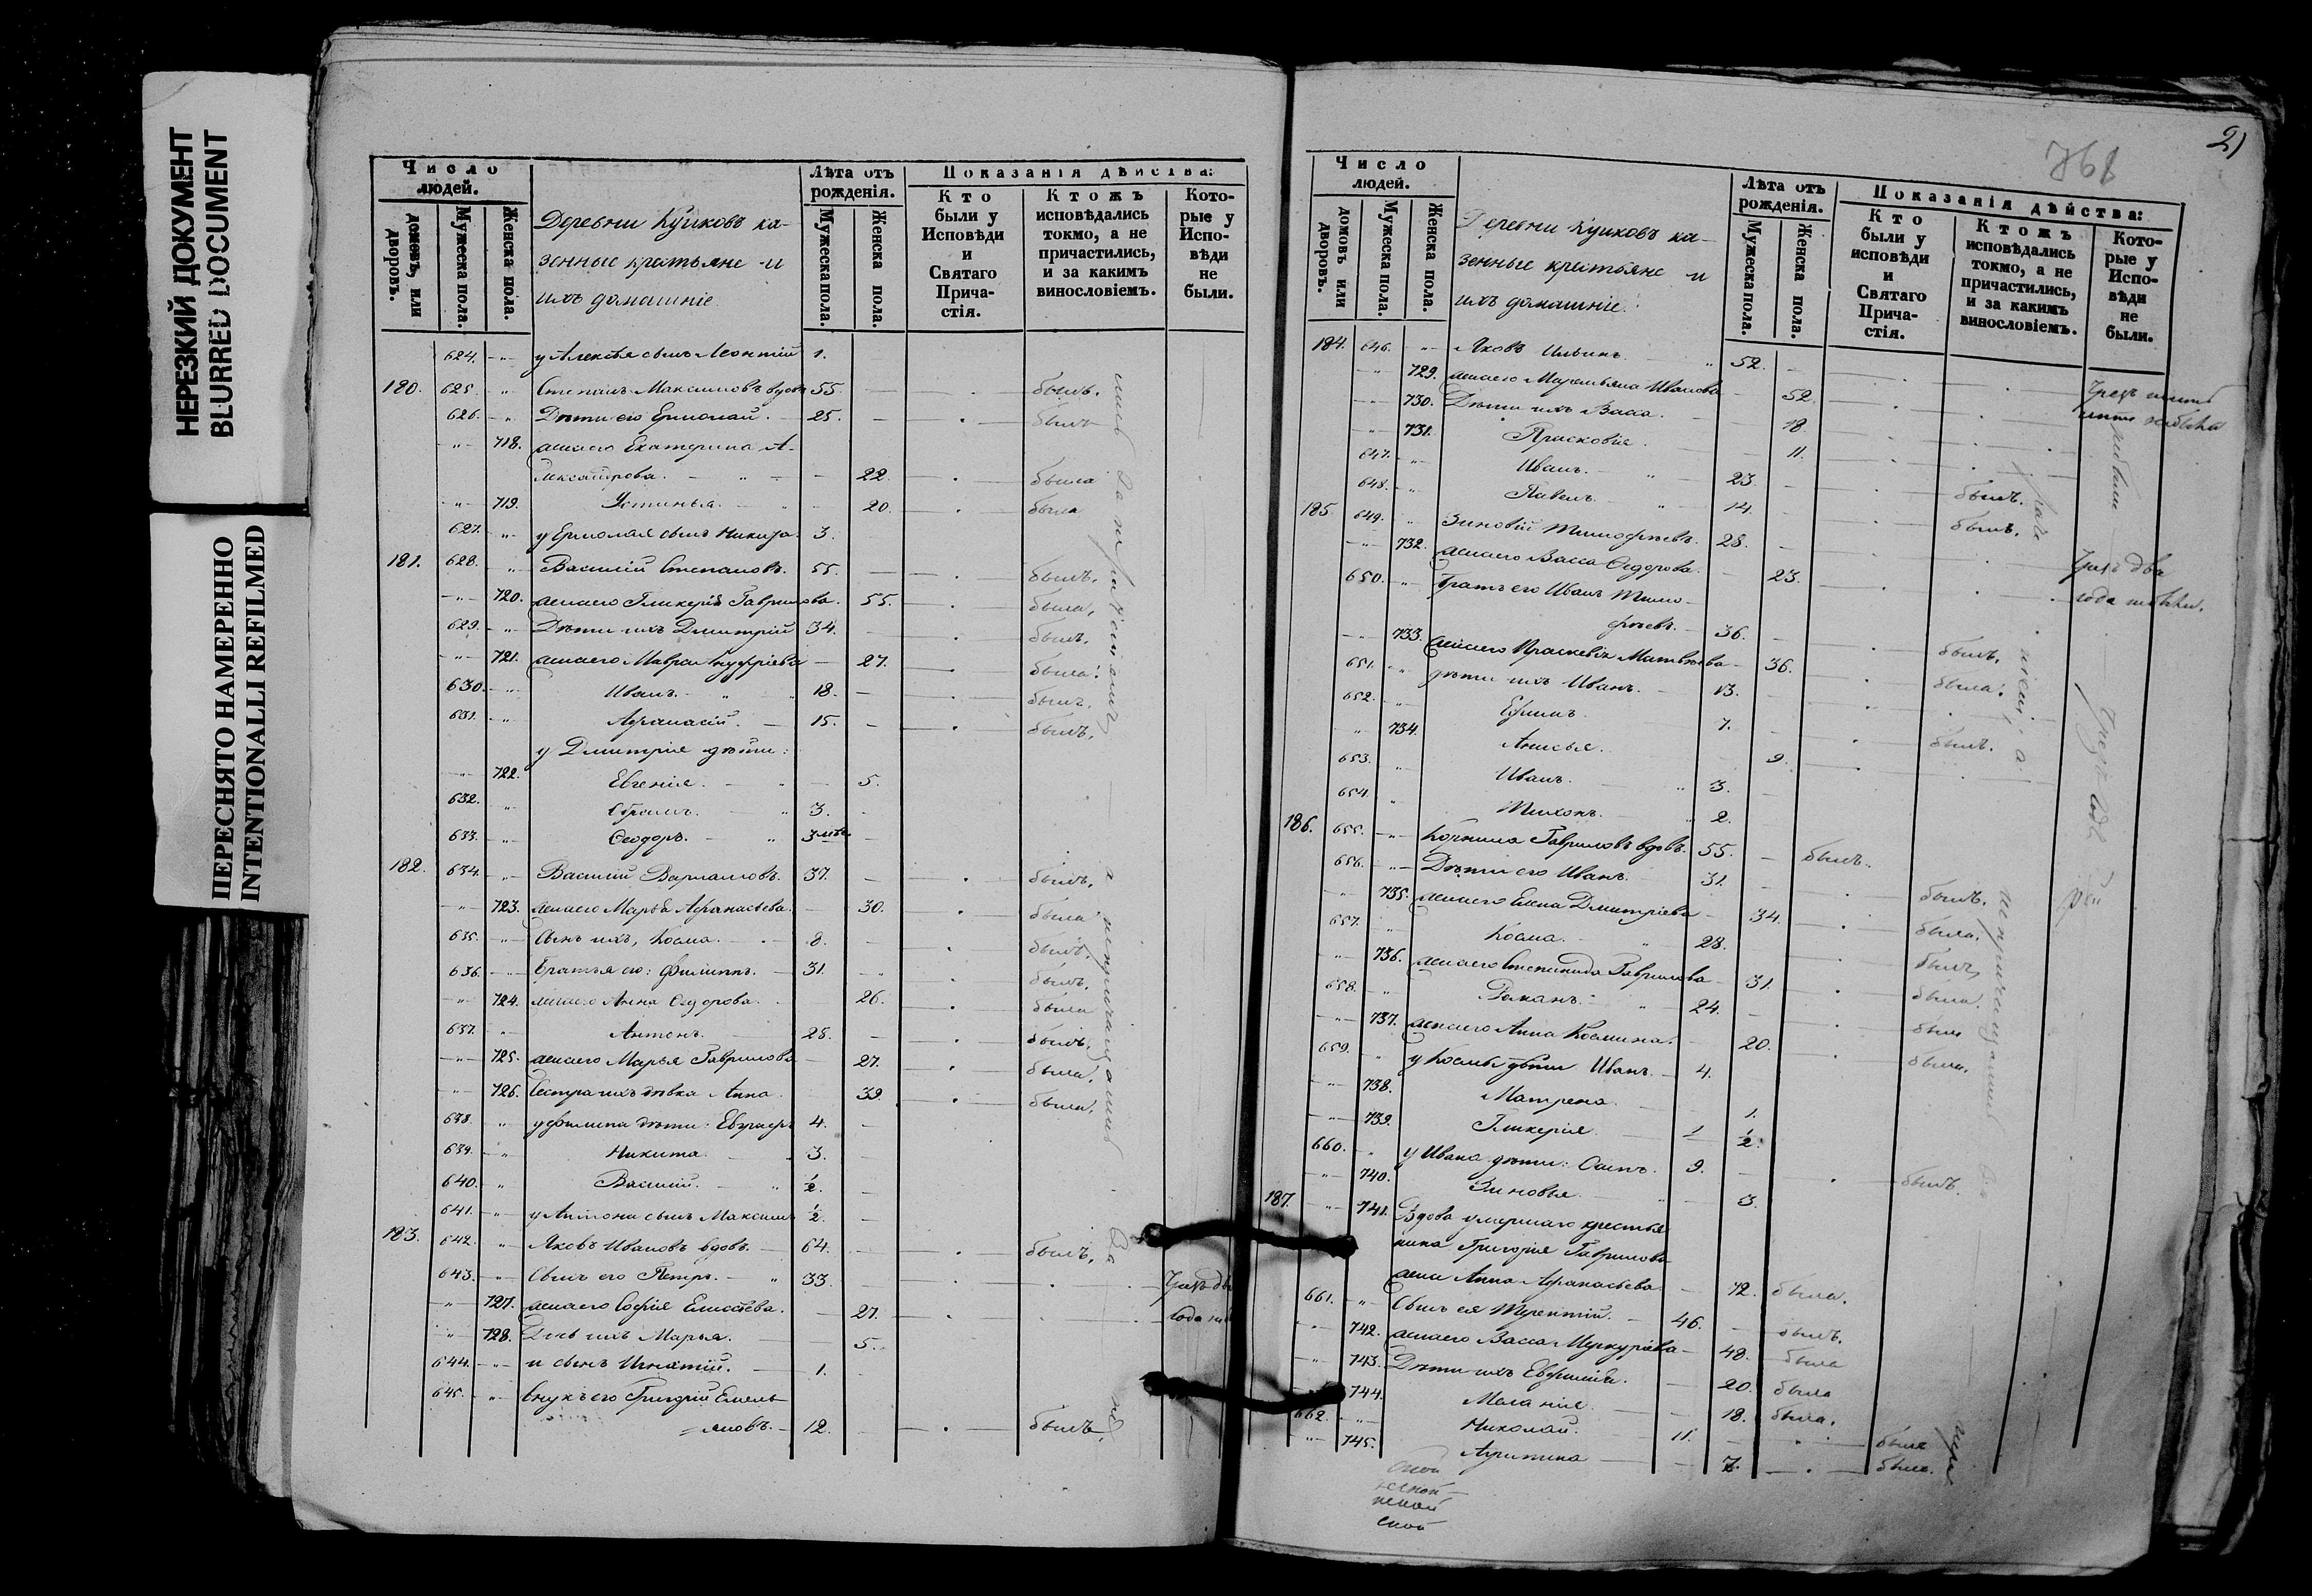 НЕРЕЗКИЙ ДОКУМЕНТ
BLURRED DOCUMENT
ПЕРЕСНЯТО НАМЕРЕННО
INTENTIONALLI REFILMED
Число людей.
домовъ, или дворовъ.
Мужеска пола.
Женска пола.
Деревни Куиковъ ка-
зенные крестьяне и
ихъ домашніе.
Лѣта отъ рожденія.
Мужеска пола.
Женска пола.
Показанія дѣйства:
Кто были у Исповѣди и Святаго Прича-стія.
Ктожъ исповѣдались токмо, а не причастились, и за какимъ винословіемъ.
Кото-рые у Испо-вѣди не были.
624. у Алексѣя сынъ Леонтій 1.
180. 625. Степанъ Максимовъ вдовъ 55. былъ.
626. Дѣти его Ермолай. 25. былъ
718. жена его Екатерина А-
лександрова. 22. была
719. Устинья. 20. была
627. у Ермолая сынъ Никита 3.
181. 628. Василій Степановъ. 55. былъ.
720. жена его Гликерія Гаврилова. 55. была,
629. Дѣти ихъ Дмитрій 34. былъ.
721. жена его Мавра Ануфріева 27. была.
630. Иванъ. 18. былъ.
631. Афанасій. 15. былъ,
у Дмитрія дѣти:
722. Евгенія. 5.
632. Ефремъ. 3.
633. Ѳеодоръ. 3 мѣс.
182. 634. Василій Варламовъ. 37. былъ.
723. жена его Марѳа Афанасьева. 30. была
635. Сынъ ихъ, Косма. 8. былъ.
636. Братья его: Филиппъ. 31. былъ.
724. жена его Анна Ѳедорова. 26. была
637. Антонъ. 28. былъ.
725. жена его Марья Гаврилова 27. была.
726. Сестра ихъ дѣвка Анна. 39. была.
638. у Филипа дѣти: Евграфъ 4.
639. Никита. 3.
640. Василій. 1/2.
641. у Антона сынъ Максимъ 1/2.
183. 642. Яковъ Ивановъ вдовъ. 64. былъ,
643. Сынъ его Петръ. 33.
727. жена его Софія Елисѣева. 27.
728. Дочь ихъ Марья. 5.
644. и сынъ Игнатій. 1.
645. Внукъ его Григорій Емель-
яновъ. 12. былъ.
768
21
Число людей.
домовъ или дворовъ.
Мужеска пола.
Женска пола.
Деревни Куиковъ ка-
зенные крестьяне и
ихъ домашніе.
Лѣта отъ рожденія.
Мужеска пола.
Женска пола.
Показанія дѣйства:
Кто были у исповѣди и Святаго Прича-стія.
Ктожъ исповѣдались токмо, а не причастились, и за какимъ винословіемъ.
Кото-рые у Испо-вѣди не были.
184. 646. Яковъ Ильинъ. 52.
729. жена его Маремьяна Иванова 52.
730. Дѣти ихъ Васса. 18
731. Прасковія. 11.
647. Иванъ. 23. былъ.
648. Павелъ. 14. былъ.
185. 649. Зиновій Тимофѣевъ. 28.
732. жена его Васса Ѳедорова. 23.
650. Братъ его Иванъ Тимо-
фѣевъ. 36. былъ.
733. жена его Праскевія Матвѣева 36. была.
651. дѣти ихъ Иванъ. 13.
652. Ефимъ. 7. былъ.
734. Анисья. 9.
653. Иванъ. 3.
654. Тихонъ. 2.
186. 655. Корнила Гавриловъ вдовъ. 55. былъ.
656. Дѣти его Иванъ. 31. былъ.
735. жена его Елена Дмитріева 34. была.
657. Косма. 28. былъ,
736. жена его Степанида Гаврилова 31. была.
658. Романъ. 24. былъ
737. жена его Анна Космина. 20. была.
659. у Космы дѣти Иванъ. 4.
738. Матрена. 1.
739. Гликерія. 1/2.
660. у Ивана дѣти: Осипъ. 9. былъ.
740. Зиновья. 3.
187. 741. Вдова умершаго крестья
нина Григорія Гаврилова
жена Анна Афанасьева 72. была.
661. Сынъ ея Терентій. 46. былъ.
742. жена его Васса Меркуріева 48. была
743. Дѣти ихъ Евфимія. 20. была
744. Меланія. 18. была.
662. Николай. 11. былъ
745. Агрипина 7. была.